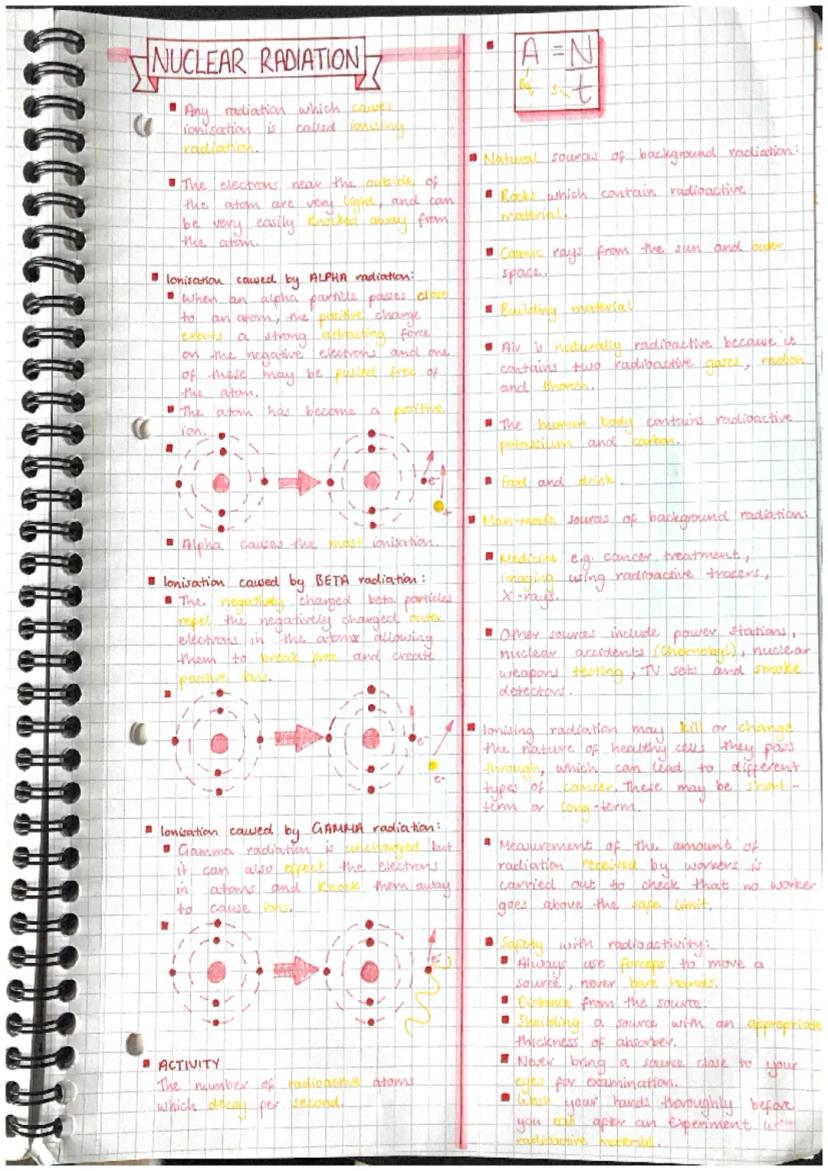 NUCLEAR RADIATION
Any radiation which causes
ionisation is called ionising
radiation.
The electrons near the outside of
the atom are very light, and can
be very easily knocked away from
the atom.
Ionisation caused by ALPHA radiation:
When an alpha particle passes close
to an atom, the positive charge
exerts a strong attracting force
on the negative electrons and one
of these may be pulled free of
the atom.
The atom has become a positive
ion.
e-
+
Alpha causes the most ionisation.
Ionisation caused by BETA radiation:
The negatively charged beta particles
repel the negatively charged outer
electrons in the atoms allowing
them to break free and create
positive ions.
e-
e-
Ionisation caused by GAMMA radiation:
Gamma radiation is uncharged but
it can also effect the electrons
in atoms and knock them away
to cause ions.
e-
ACTIVITY
The number of radioactive atoms
which decay per second.
A = N
t
Bq
s
Natural sources of background radiation:
Rocks which contain radioactive
material.
Cosmic rays from the sun and outer
space.
Building material
Air is naturally radioactive because it
contains two radioactive gases, radon
and thoron.
The human body contains radioactive
potassium and carbon.
Food and drink.
Man-made sources of background radiation:
Medicine e.g. cancer treatment,
imaging using radioactive tracers,
X-rays.
Other sources include power stations,
nuclear accidents (Chernobyl), nuclear
weapons testing, TV sets and smoke
detectors.
Ionising radiation may kill or change
the nature of healthy cells they pass
through, which can lead to different
types of cancer. These may be short-
term or long-term.
Measurement of the amount of
radiation received by workers is
carried out to check that no worker
goes above the safe limit.
Safety with radioactivity:
Always use forceps to move a
source, never bare hands.
Distance from the source.
Sheilding a source with an appropriate
thickness of absorber.
Never bring a source close to your
eyes for examination.
Wash your hands thoroughly before
you eat after an experiment with
radioactive material.